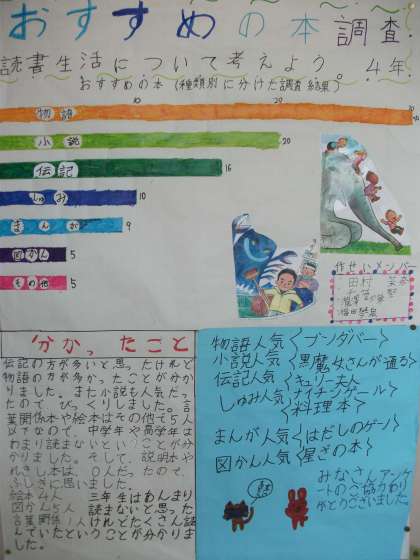 おすすめの本調査
読書生活について考えよう 4年
おすすめの本(種類別に分けた調査結果)
10
20
物語
小説
20
伝記
16
しゅみ
10
まんが
9
図かん
5
その他
5
作せいメンバー
田村
分かったこと
伝記の方が多いと思ったけれど
物語の方が多かったことが分か
りました。また小説も人気だっ
たので びっくりしました。言
葉関係本や絵本はその他で5人
以下なので、中学年や高学年は
あまり読まないということが分
かりました。そして、説明本や
れきし本は、0人だったので、
ふしぎに思いました。
絵本4人 三年生はあんまり
図かん5人 読まないと思った
言葉関係1人 けれどたくさん読
んでいたということが分かりま
した。
物語人気〈ブンダバー〉
小説人気〈黒魔女さんが通る〉
伝記人気〈キュリー夫人
ナイチンゲール〉
しゅみ人気〈料理本〉
まんが人気〈はだしのゲン〉
図かん人気〈星ざの本〉
みなさんアンケ
ートのご協力あり
がとうございました。